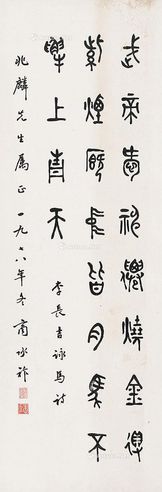 武帝愛神僊燒金得
紫煙廄中皆肉馬不
學上青天
李長吉詠馬詩
兆麟先生属正 一九七八年冬 商承祚